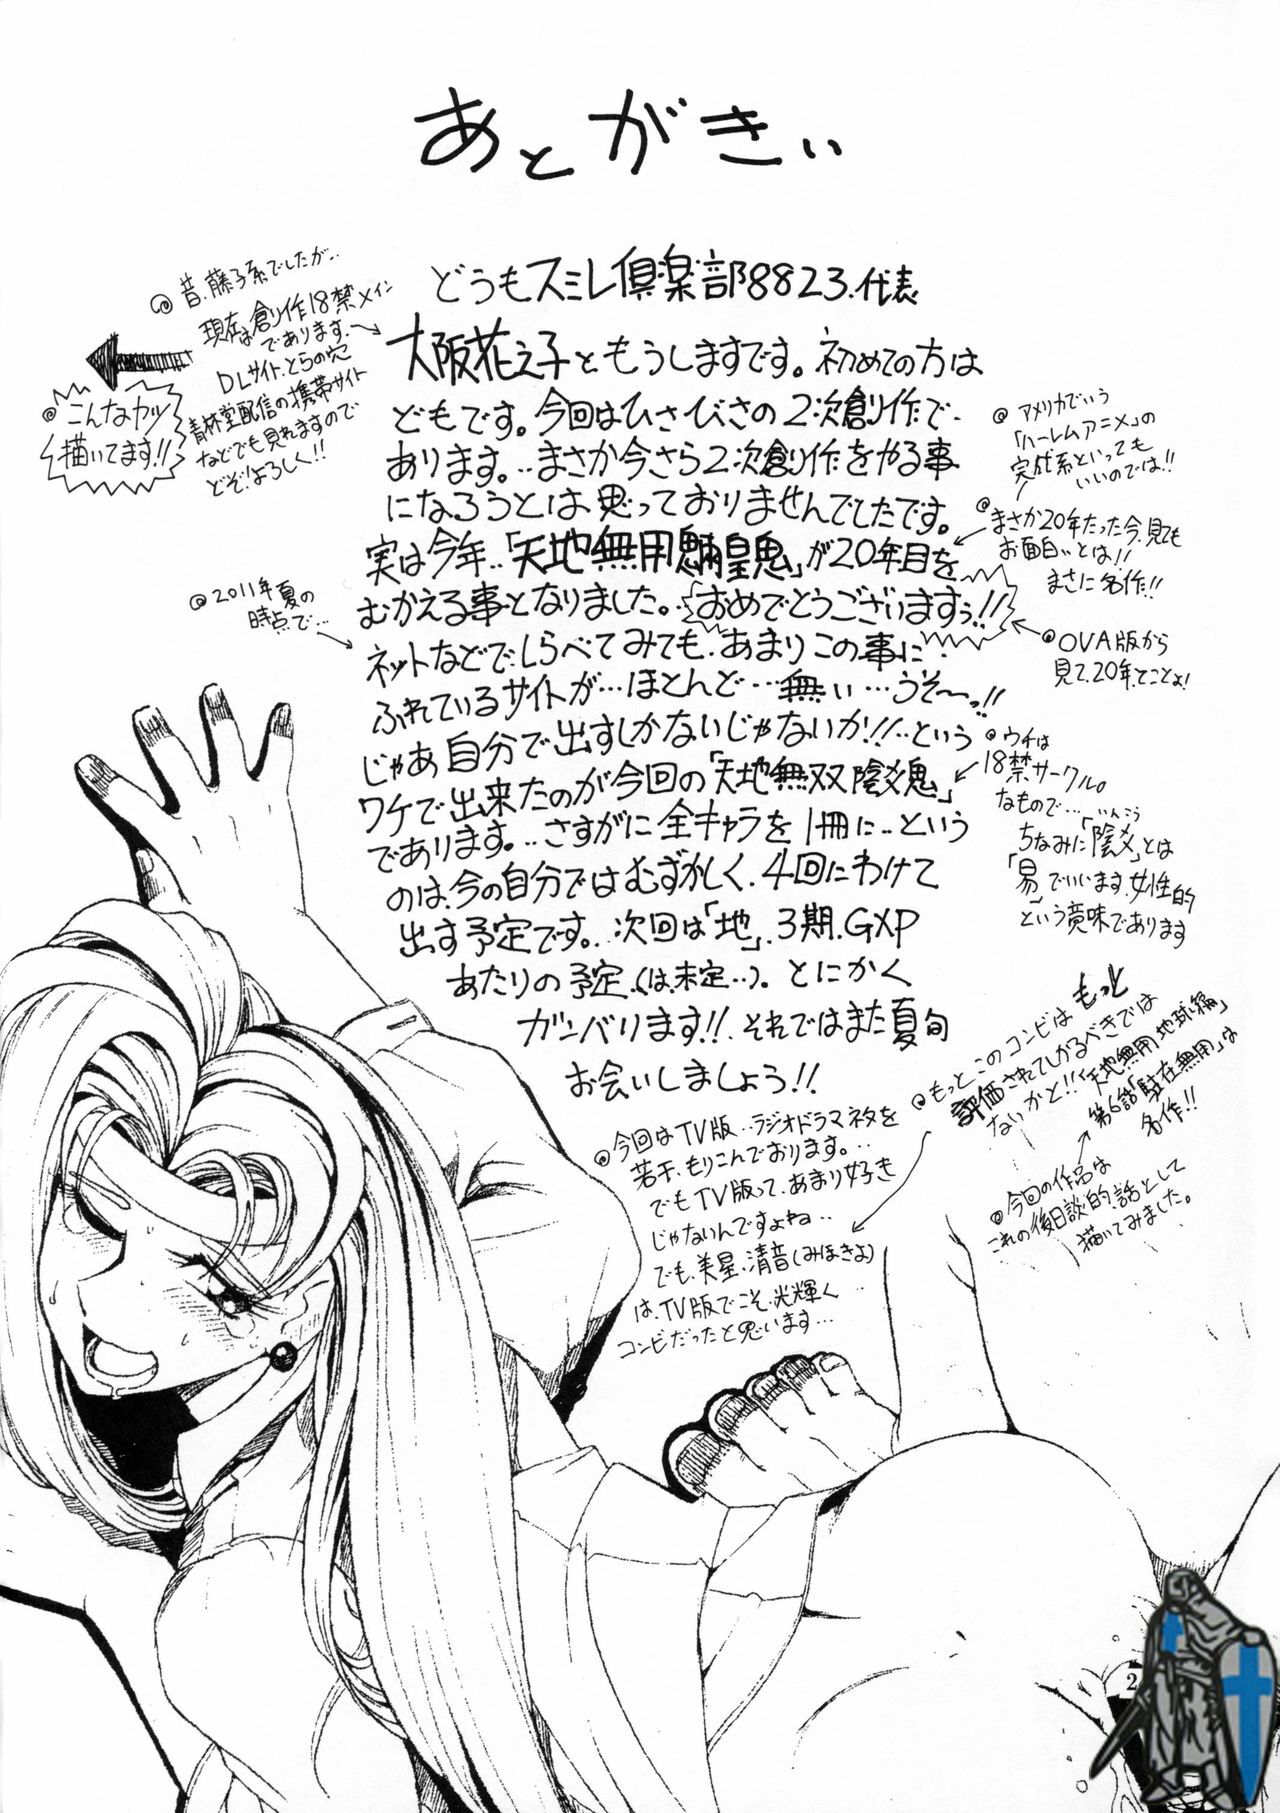 あとがきぃ
どうもスミレ倶楽部8823.代表
大阪花之子ともうしますです。初めての方は
どもです。今回はひさびさの2次創作で
あります。‥まさか今さら2次創作をやる事
になろうとは思っておりませんでしたです。
実は今年‥「天地無用魎皇鬼」が20年目を
むかえる事となりました。おめでとうございますぅ!!
ネットなどでしらべてみても、あまりこの事に
ふれているサイトが…ほとんど…無い…うそ〜っ!!
じゃあ自分で出すしかないじゃないか!!‥という
ワケで出来たのが今回の「天地無双陰爻鬼」
であります。‥さすがに全キャラを1冊に‥という
のは、今の自分ではむずかしく、4回にわけて
出す予定です。‥次回は「地」、3期、GXP
あたりの予定、(は未定‥)。とにかく
ガンバリます!!それではまた夏旬
お会いしましょう!!
昔、藤子系でしたが‥
現在は創作18禁メイン
であります。
DLサイト、とらの穴
青林堂配信の携帯サイト
などでも見れますので
どぞ!よろしく!!
こんなカッ
描いてます!!
2011年夏の
時点で…
アメリカでいう
「ハーレムアニメ」の
完成系といっても
いいのでは!!
まさか20年たった今、見ても
お面白いとは!!
まさに名作!!
OVA版から
見て、20年、てことよ!
ウチは
18禁サークル。
なもので…
いんこう
ちなみに「陰爻」とは
「易」でいいます、女性的
という意味であります
もっとこのコンビはもっと
評価されてしかるべきでは
ないかと!!
「天地無用地球編」
第6話「駐在無用」は
名作!!
今回の作品は
これの後日談的、話として
描いてみました。
今回はTV版‥ラジオドラマネタを
若干、もりこんでおります。‥
でもTV版って、あまり好き
じゃないんですよね‥
でも、美星、清音(みほきよ)
は、TV版でこそ、光輝く
コンビだったと思います…
2